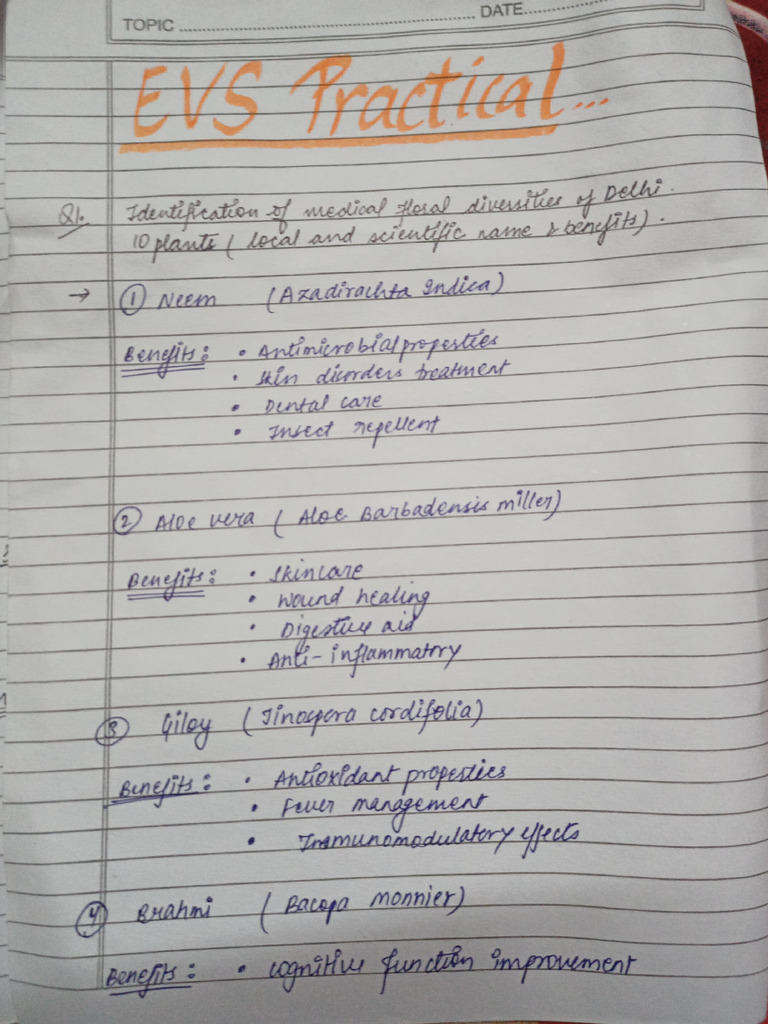 TOPIC DATE
EVS Practical...
Q1. Identification of medical floral diversities of Delhi.
10 plants ( local and scientific name & benefits).
→ ① Neem (Azadirachta Indica)
Benefits: • Antimicrobial properties
• Skin disorders treatment
• Dental care
• Insect repellent
② Aloe vera ( Aloe Barbadensis miller)
Benefits: • Skincare
• Wound healing
• Digestive aid
• Anti-inflammatory
③ Giloy (Tinospora cordifolia)
Benefits: • Antioxidant properties
• Fever management
• Immunomodulatory effects
④ Brahmi (Bacopa monnier)
Benefits: • cognitive function improvement